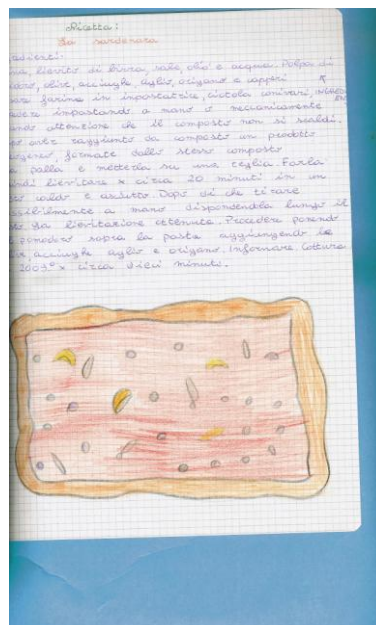 Ricetta:
La sardenara
adienti:
na, lievito di birra, sale, olio e acqua. Polpa di
doro, olive, acciughe, aglio, origano e capperi
ere farina in impastatrice, ciotola
edere impastando a mano o meccanicamente
ando attenzione che il composto non si scaldi.
po aver raggiunto da composto un prodotto
ogeneo, formate dallo stesso composto
palla e metterla su una teglia. Farla
indi lievitare x circa 20 minuti in un
to caldo e asciutto. Dopo di che tirare
ssibilmente a mano disponendola lungo il
to. La lievitazione ottenuta. Procedere ponendo
pomodoro sopra la pasta aggiungendo le
ive, acciughe aglio e origano. Infornare. Cottura
x circa dieci minuti.